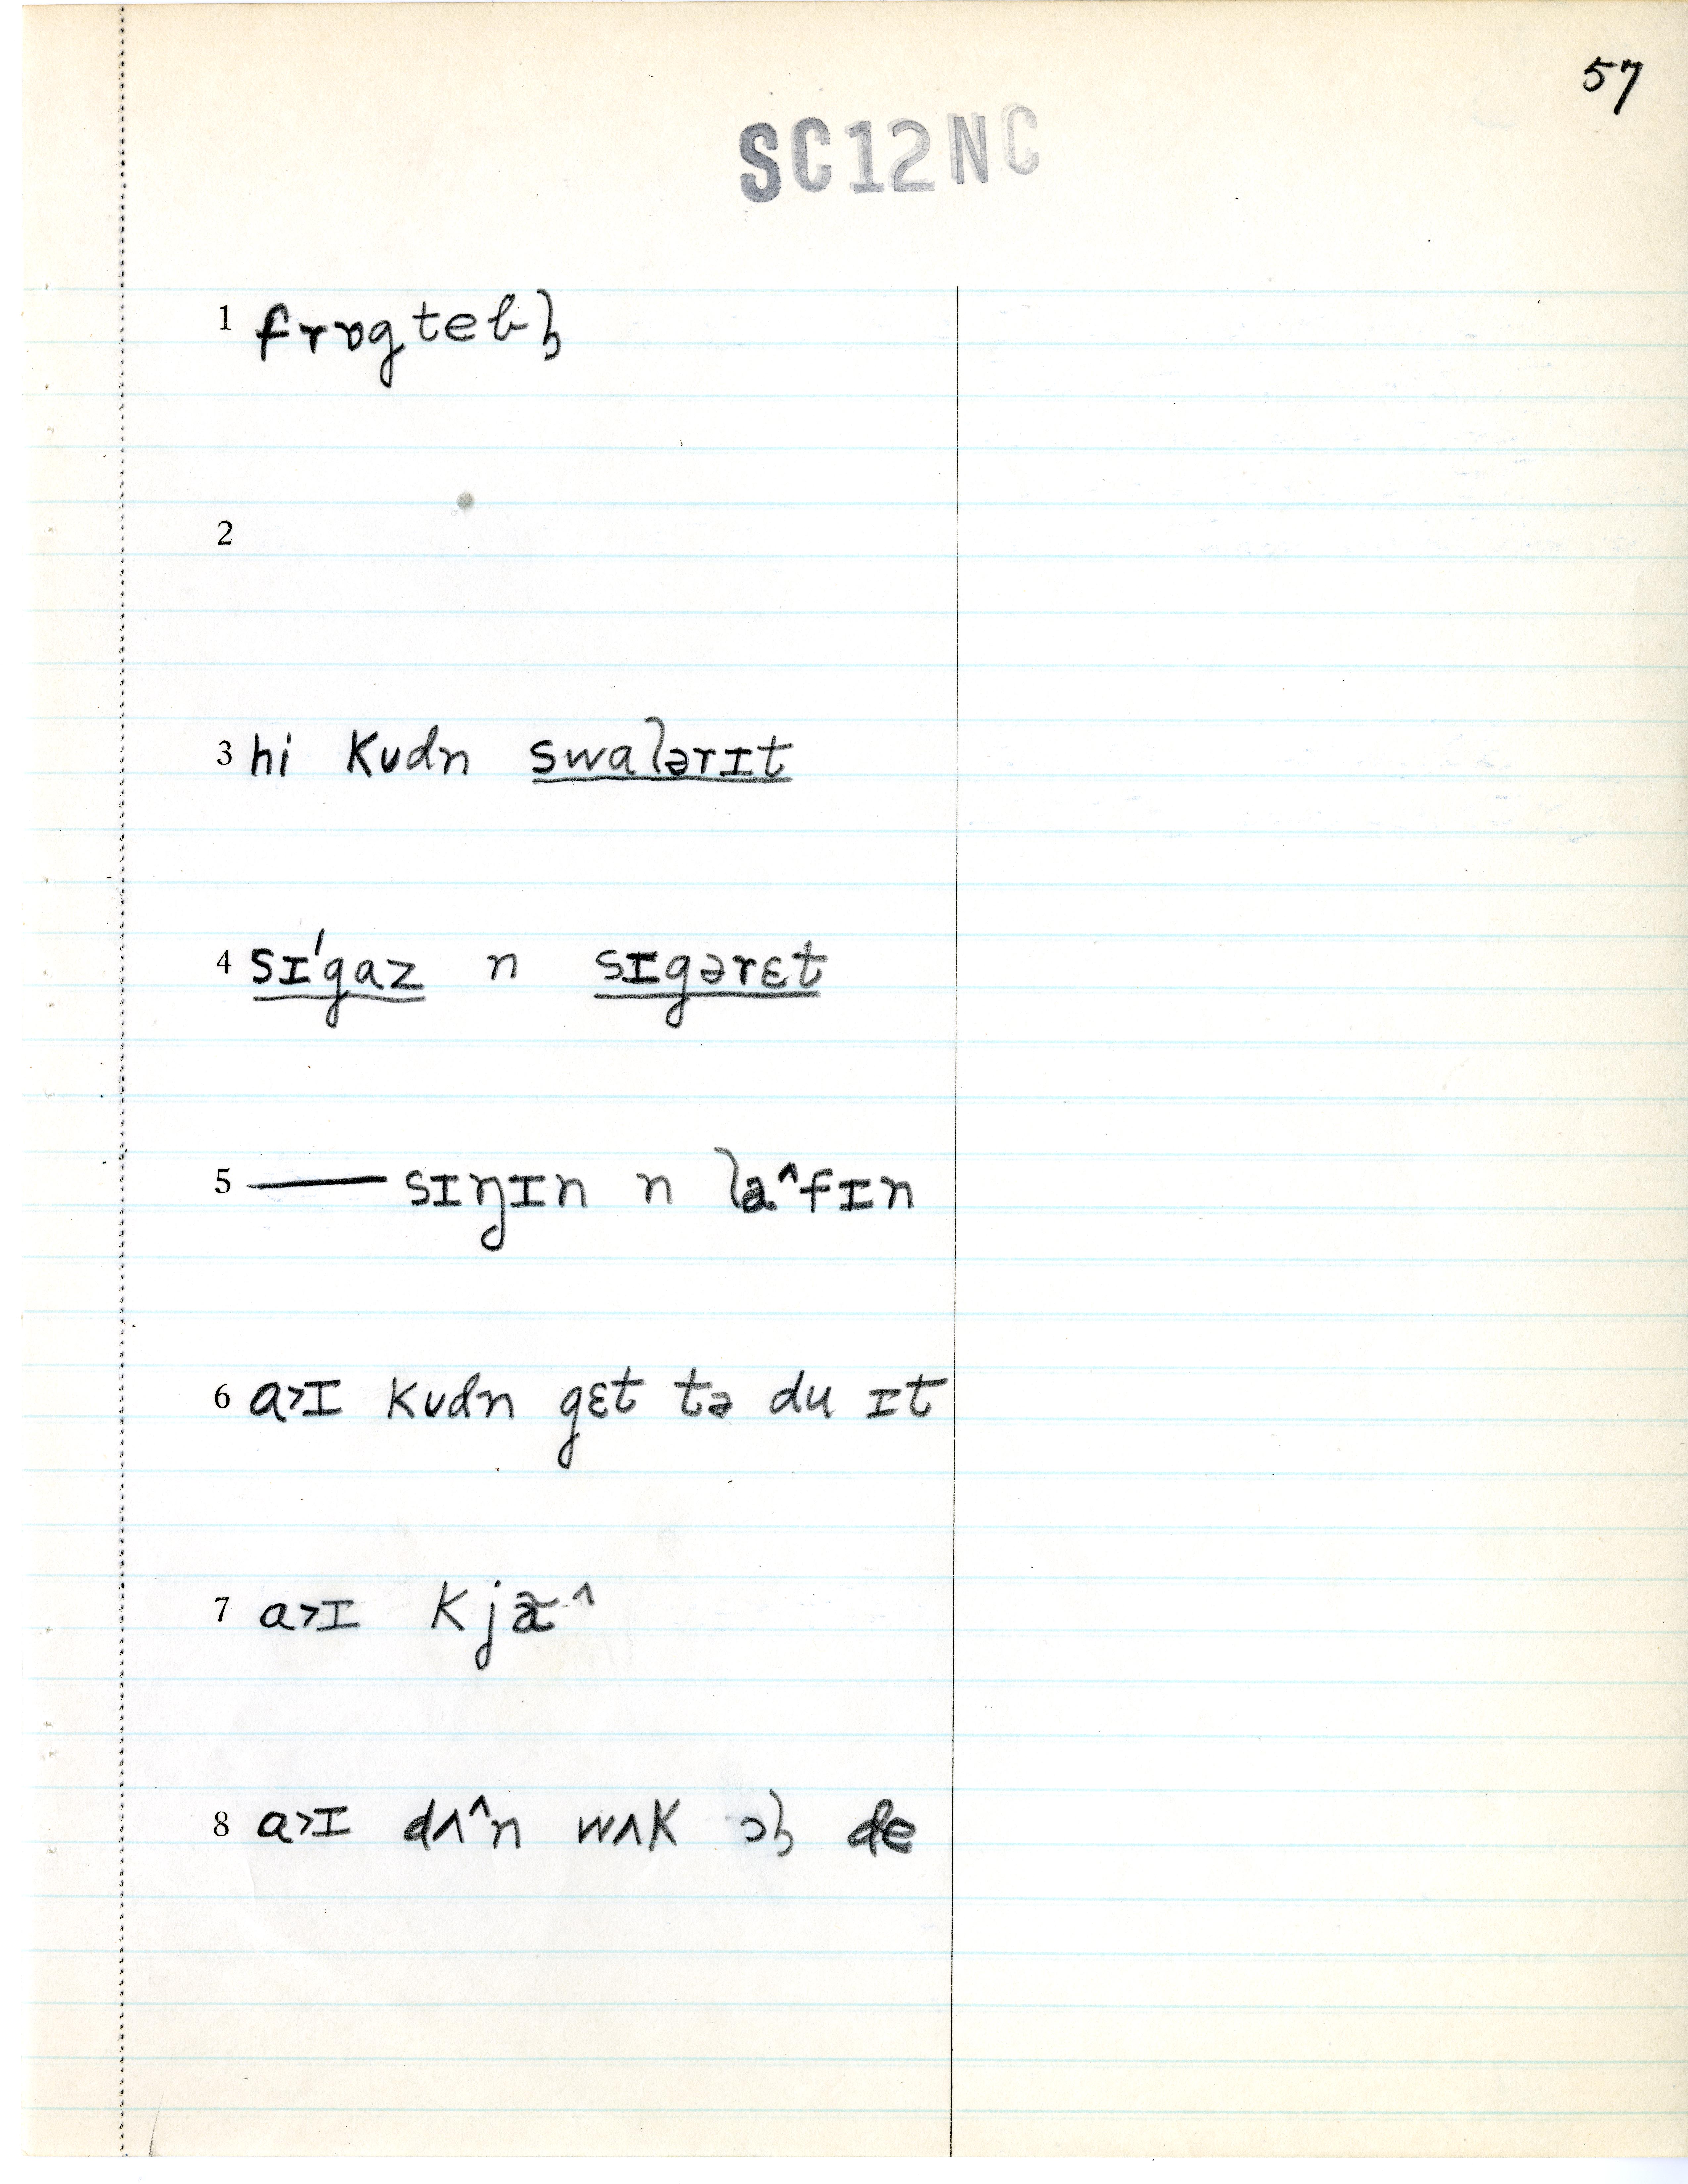 57
SC12NC
1 frɒgtebɫ
2
3 hi kʊdn swalərɪt
4 sɪ'gaz n sɪgərɛt
5 —— sɪŋɪn n la^fɪn
6 a>ɪ kʊdn gɛt tə du ɪt
7 a>ɪ kjæ̃^
8 a>ɪ dʌ^n wʌk ɔɫ de